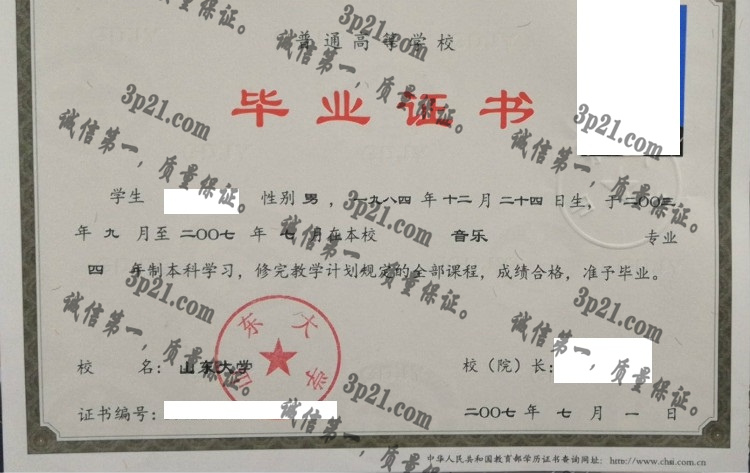 普通高等学校
毕业证书
学生 性别 男 ,一九八四 年 十二 月 二十四 日生, 于 二〇〇三
年 九 月至 二〇〇七 年 七 月在本校 音乐 专业
四 年制本科学习, 修完教学计划规定的全部课程, 成绩合格, 准予毕业。
山东大学
校 名: 山东大学 校(院)长:
证书编号: 二〇〇七 年 七 月 一 日
中华人民共和国教育部学历证书查询网址: http://www.chsi.com.cn
3p21.com
诚信第一, 质量保证。
3p21.com
诚信第一, 质量保证。
3p21.com
诚信第一, 质量保证。
3p21.com
诚信第一, 质量保证。
3p21.com
诚信第一, 质量保证。
3p21.com
诚信第一, 质量保证。
3p21.com
诚信第一, 质量保证。
诚信第一, 质量保证。